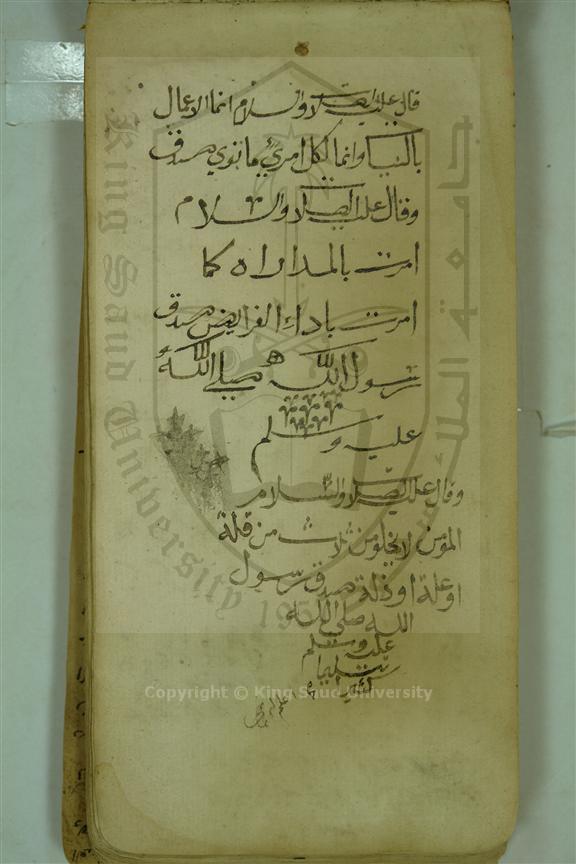 قال عليه الصلاة والسلام انما الاعمال
بالنيات وانما لكل امرئ ما نوي صدق
وقال عليه الصلاة والسلام
امرت بالمداراه كما
امرت باداء الفرايض صدق
رسول الله صلي الله
عليه وسلم
وقال عليه الصلاة والسلام
المؤمن لا يخلو من ثلاث من قلة
او علة او ذلة صدق رسول
الله صلى الله
عليه وسلم
تسليما
كثيرا
جامعة الملك
King Saud University 195
Copyright © King Saud University